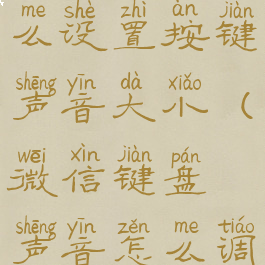 me shè zhì àn jiàn
么设置按键
shēng yīn dà xiǎo
声音大小（
wēi xìn jiàn pán
微信键盘
shēng yīn zěn me tiáo
声音怎么调